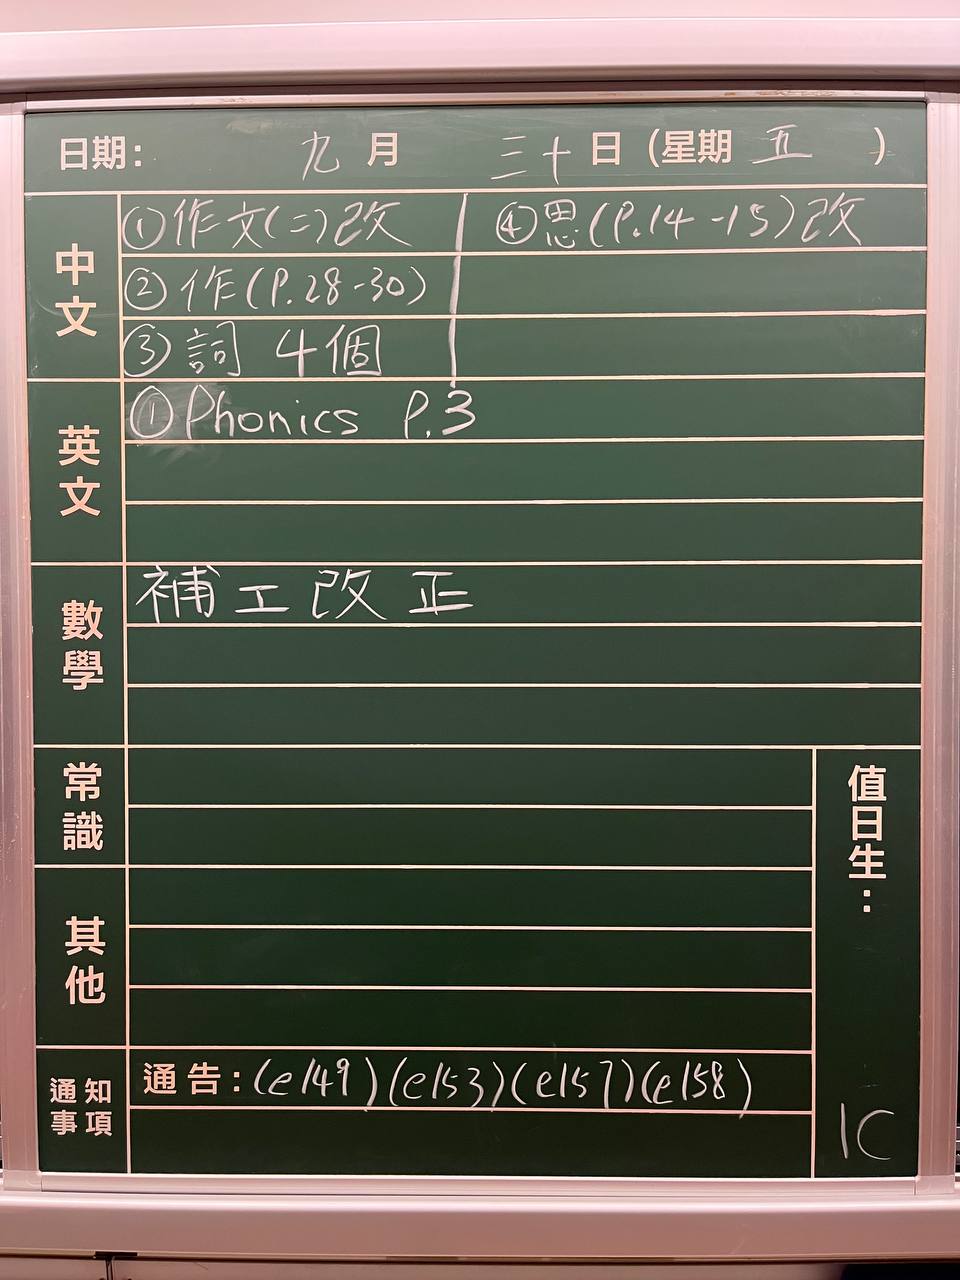 日期： 九 月 三十 日 (星期 五 )
中文
①作文(二)改
②作(P.28-30)
③詞 4個
④思(P.14-15)改
英文
①Phonics P.3
數學
補工改正
常識
其他
值日生：
1C
通知事項
通告：(e149)(e153)(e157)(e158)